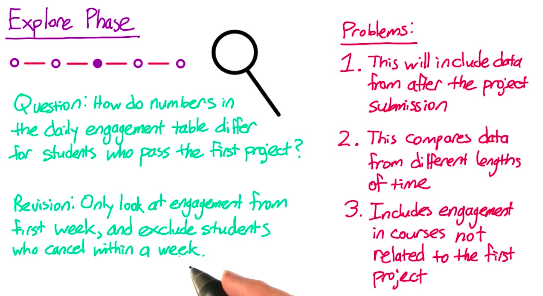 Explore Phase
Question: How do numbers in
the daily engagement table differ
for students who pass the first project?
Revision: Only look at engagement from
first week, and exclude students
who cancel within a week.
Problems:
1. This will include data
from after the project
submission
2. This compares data
from different lengths
of time
3. Includes engagement
in courses not
related to the first
project